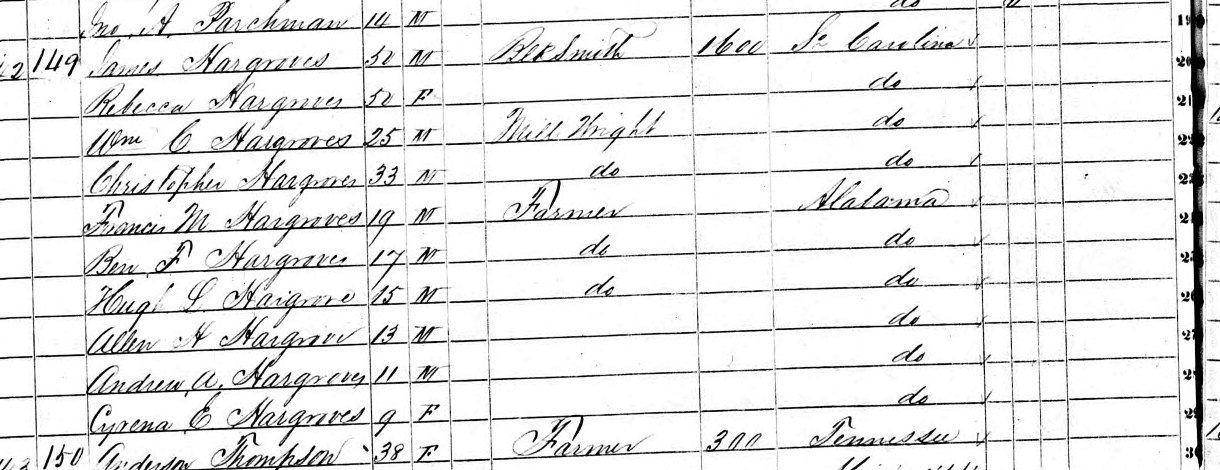 do
Jno, A. Parchman 14 M 19
149 James Hargroves 50 M BlkSmith 1600 So Carolina 20
Rebecca Hargroves 50 F do 21
Wm C Hargroves 25 M Mill Wright do 22
Christopher Hargroves 33 M do do 23
Francis M. Hargroves 19 M Farmer Alabama 24
Ben, F Hargroves 17 M do do 25
Hugh L Hargrove 15 M do do 26
Allen H Hargrove 13 M do 27
Andrew, A, Hargroves 11 M do 28
Cyrena E Hargroves 9 F do 29
150 Anderson Thompson 38 F Farmer 300 Tennessee 30